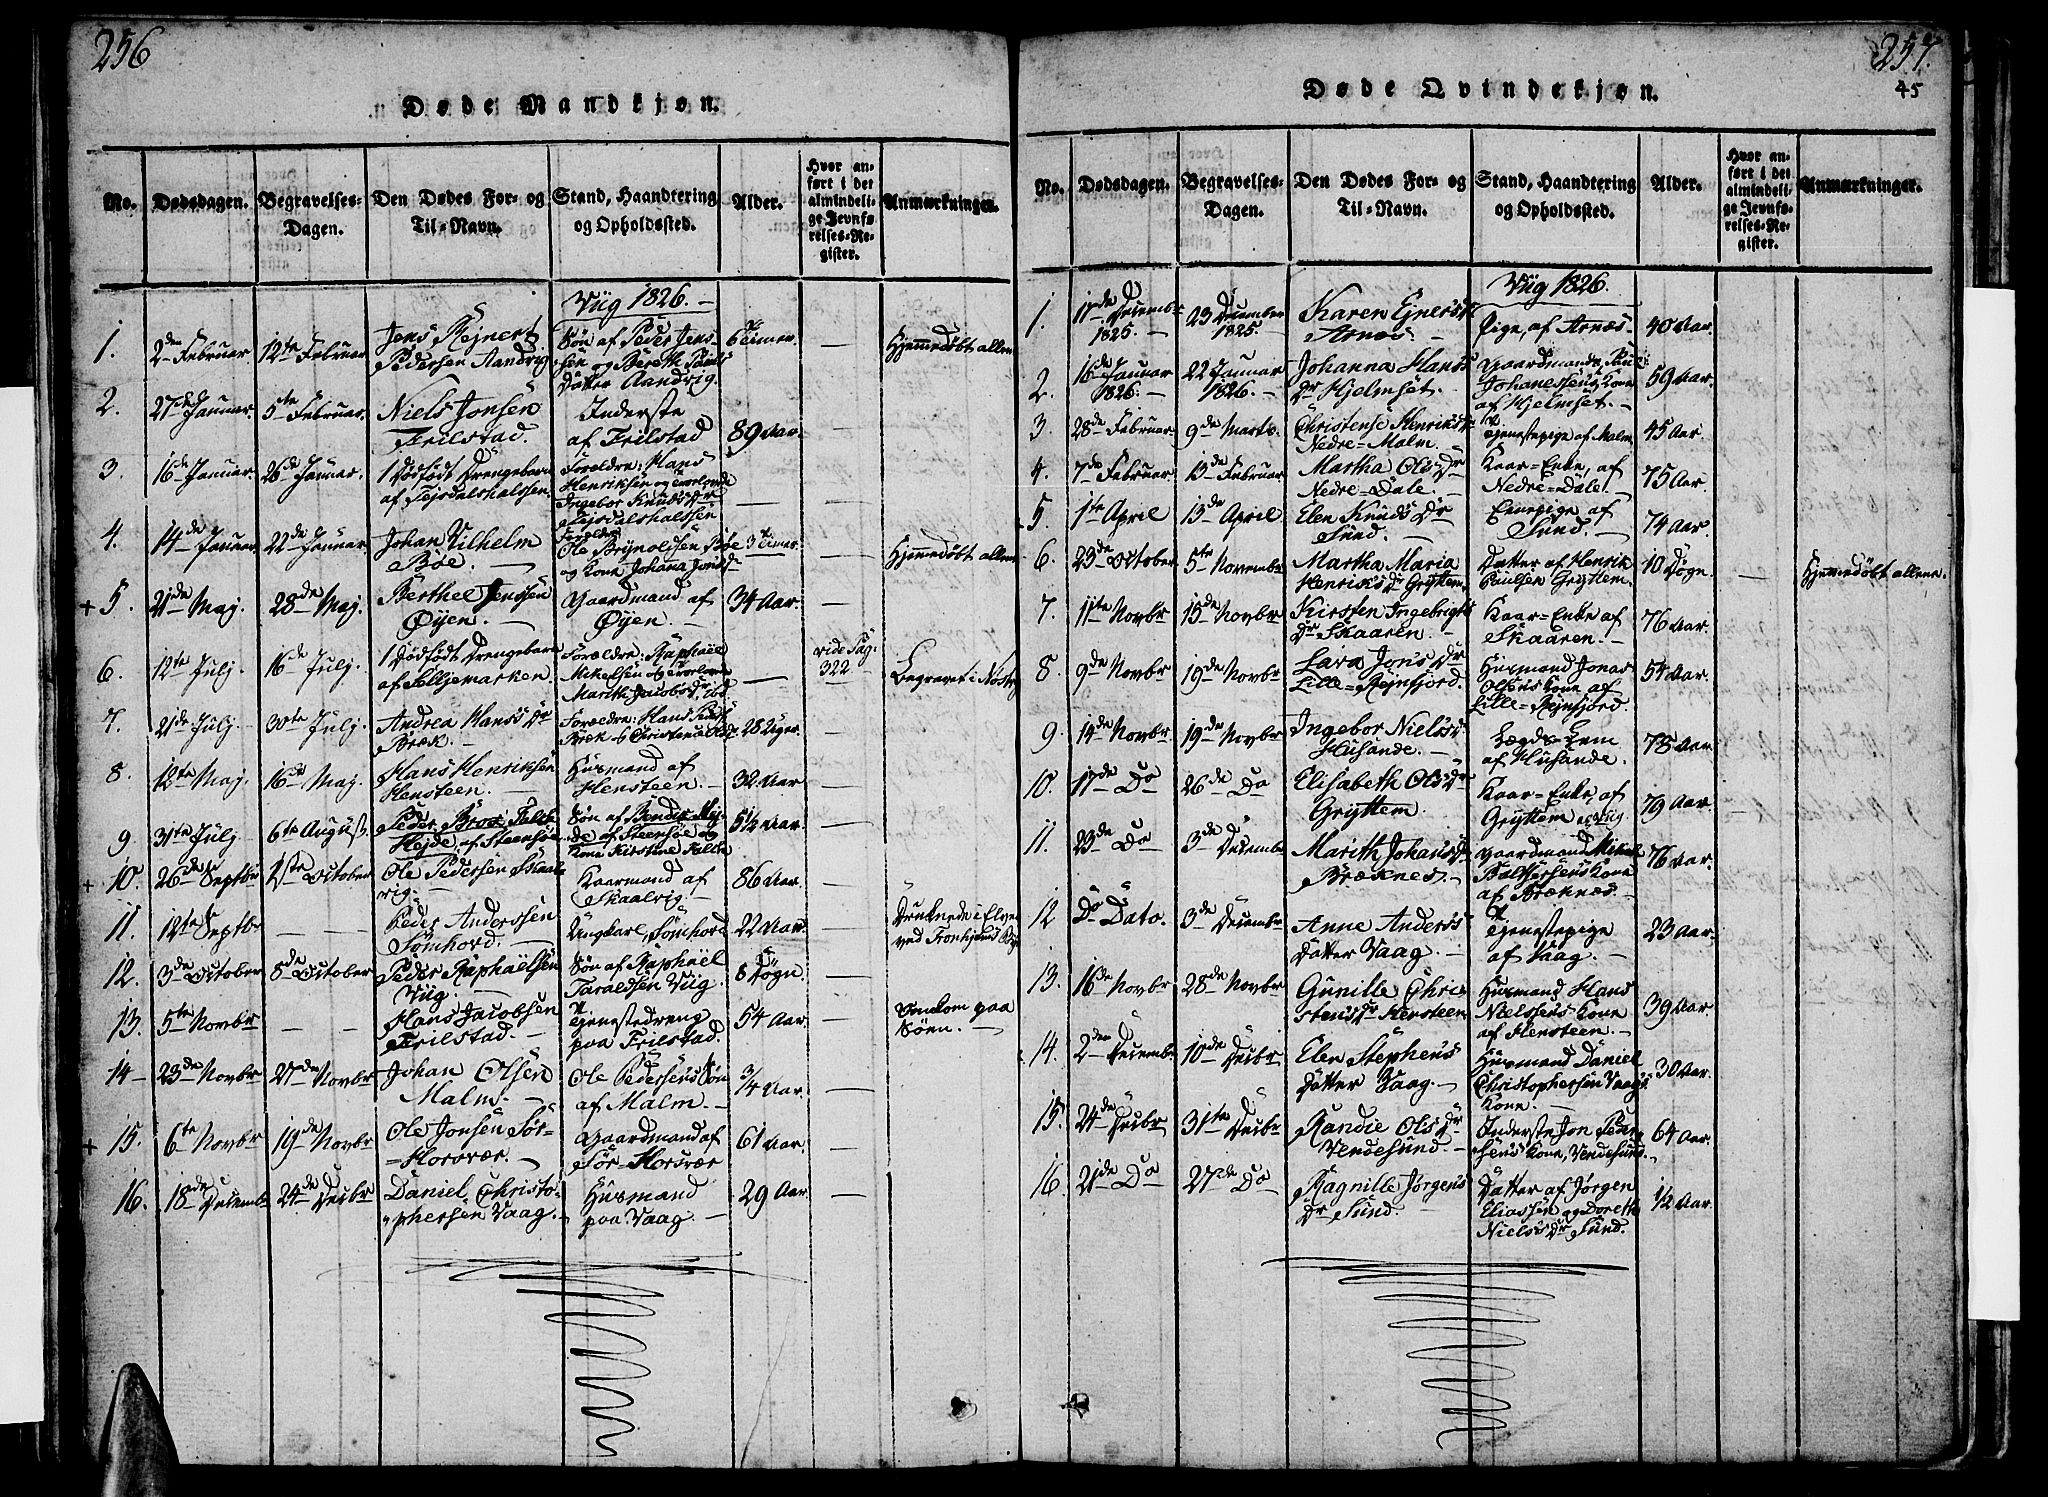 256
Døde Mandkjøn.
No.
Dødsdagen.
Begravelses-
Dagen.
Den Dødes For- og
Til-Navn.
Stand, Haandtering
og Opholdssted.
Alder.
Hvor an-
ført i det
almindeli-
ge Jevnfø-
relses-Re-
gister.
Anmærkninger.
Viig 1826. -
1. 2den Februar 12te Februar
Jens Rejnert
Pedersen Aandvig
Søn af Peder Jens-
sen og Bereth Pauls
Datter Aandvig.
6 Timer. — Hjemmedøbt allene
2. 27de Januar. 5te Februar.
Niels Jonsen
Trilstad.
Inderste
af Trilstad
89 Aar. —
3. 16de Januar. 26de Januar.
1 Dødfødt Drengebarn
af Tejsdalshalssen.
Foreldre: Hans
Henriksen og trolovede
Ingebor Knuds Dr
Tejsdalshalssen
— —
4. 14de Januar 22de Januar.
Johan Vilhelm
Bøe. —
Foreldre
Ole Brynoldsen Bøe
og Kone Johana Jonsd
3 Timer. — Hjemedøbt allene
+ 5. 21de Maj. 28de Maj.
Berthel Jenssen
Øyen. —
Gaardmand af
Øyen. —
34 Aar. —
6. 12te Julj. 16de Julj.
1 Dødfødt Drengebarn
af Selljemarken.
Forældre: Raphael
Mikelsen og trolovede
Marith Jacobsdr
— vide Pag:
322 Begravet i
7. 21de Julj. 30te Julj.
Andrea Hans's Dr
Bræk. —
Forældre: Hans Peds:
Bræk
28 Uger. —
8. 12te Maj. 16de Maj.
Hans Henriksen
Hensteen. —
Husmand af
Hensteen. —
32 Aar —
9 31te Julj 6te August.
Peder Broe Falk
Hejde, af Steensøe
Søn af Bendix Hej-
de af Steensøe og
Kone Kirstine Falck
5½ Aar —
+ 10. 26de Septbr 1ste October
Ole Pedersen Skaal
vig. —
Kaarmand af
Skaalvig. —
86 Aar. —
11. 12te Septbr — —
Peder Anderssen
Sømhord. —
Ungkarl, Sømhord
22 Aar. —
Druknede i Elven
ved Tronhjems Bye
12. 3de October 8de October
Peder Raphaelsen
Viig. —
Søn af Raphael
Taraldsen Viig.
8 Døgn. —
13. 5te Novbr — —
Hans Jacobsen
Trilstad. —
Tjenestedreng
paa Trilstad.
54 Aar. —
Omkom paa
Søen. —
14 - 23de Novbr 27de Novbr
Johan Olsen
Malm. —
Ole Pedersens Søn
af Malm. —
3/4 Aar. —
+ 15. 6te Novbr 19de Novbr
Ole Jonsen Sør-
=Horsvær. —
Gaardmand af
Sør=Horsvær
61 Aar. —
16. 18de Decemb: 24de Decbr
Daniel Christo-
phersen Vaag. —
Husmand
paa Vaag. —
29 Aar. —
257.
45
Døde Qvindekjøn.
No.
Dødsdagen.
Begravelses-
Dagen.
Den Dødes For- og
Til-Navn.
Stand, Haandtering
og Opholdssted.
Alder.
Hvor an-
ført i det
almindeli-
ge Jevnfø-
relses-Re-
gister.
Anmærkninger.
Viig 1826.
1. 17de Decemb:
1825. —
23 December
1825. —
Karen Ejnersd
Arnøs. —
Pige, af Arnøs. -
40 Aar.
2. 16de Januar
1826. —
22 Januar
1826. —
Johanna Hans's
Dr Hjelmset. —
Gaardmands Poul
Johanessens Kone
af Hjelmset. —
59 Aar.
3. 28de Februar 9de Marts.
Christense Henriksd
Nedre=Malm. —
Tjenestepige af Malm
45 Aar.
4. 7de Februar 13de Februar
Martha Ols Dr
Nedre=Dale. —
Kaar=Enke, af
Nedre=Dale. —
75 Aar.
5. 1te April 13de April
Elen Knuds Dr
Sund. —
af
Sund. —
74 Aar.
6. 23de October 5te Novembr
Martha Maria
Henriks Dr Gryttem.
Datter af Henrik
Paulsen Gryttem.
10 Døgn. — Hjemmedøbt allene.
7. 11te Novbr 15de Novbr
Kirsten Ingebrigts
Dr Skaaren. —
Kaar=Enke af
Skaaren. —
76 Aar.
8. 9de Novbr 19de Novbr
Lara Jons Dr
Lille=Rejnfjord.
Husmand Jonas
Olsens Kone af
Lille=Rejnfjord.
54 Aar.
9. 14de Novbr. 19de Novbr
Ingebor Nielsd
Husande. —
Lægds=Lem
af Husande. —
78 Aar.
10. 17de Do 26de Do
Elisabeth Olsdr
Gryttem
Kaar=Enke, af
Gryttem
79 Aar.
11. 23de Do 3de Decembr
Marith Johansd
Bræknes. —
Gaardmand Mikel
Balthersens Kone
af Bræknæs. —
76 Aar.
12 Do Dato. 3de Decembr
Anne Anders's
Datter Vaag. —
Tjenestepige
af Vaag. —
23 Aar.
13. 16de Novbr 28de Novbr
Gunille Chri-
stensdr Hensteen
Husmand Hans
Nielsens Kone
af Hensteen. —
39 Aar
14. 2den Decembr 10de Decbr
Elen Stephens's
Datter Vaag. —
Husmand Daniel
Christophersen Vaag's
Kone. —
30 Aar.
15. 24de Decbr 31te Decbr
Randie Ols Dr
Vendesund. —
Inderste Jon Peder
sens Kone, Vendesund. —
64 Aar.
16. 21de Do 27de Do
Ragnille Jørgens's
Dr Sund. —
Datter af Jørgen
Eliassen og Doreth
Niels's Dr Sund.
1/2 Aar.